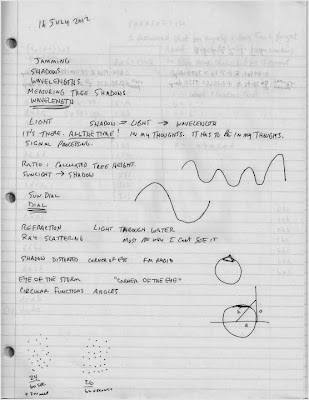 16 JULY 2012
JAMMING
SHADOWS
WAVELENGTHS
MEASURING TREE SHADOWS
WAVELENGTH
LIGHT SHADOW → LIGHT → WAVELENGTH
IT'S THERE. ALL THE TIME! IN MY THOUGHTS. IT HAS TO BE IN MY THOUGHTS.
SIGNAL PROCESSING.
RATIO: CALCULATED TREE HEIGHT.
SUNLIGHT → SHADOW
SUN DIAL
DIAL
REFRACTION LIGHT THROUGH WATER
RAY SCATTERING MUST BE WHY I CAN'T SEE IT
SHADOW DISTORTED CORNER OF EYE FM RADIO
EYE OF THE STORM "CORNER OF THE EYE"
CIRCULAR FUNCTIONS ANGLES
24 26